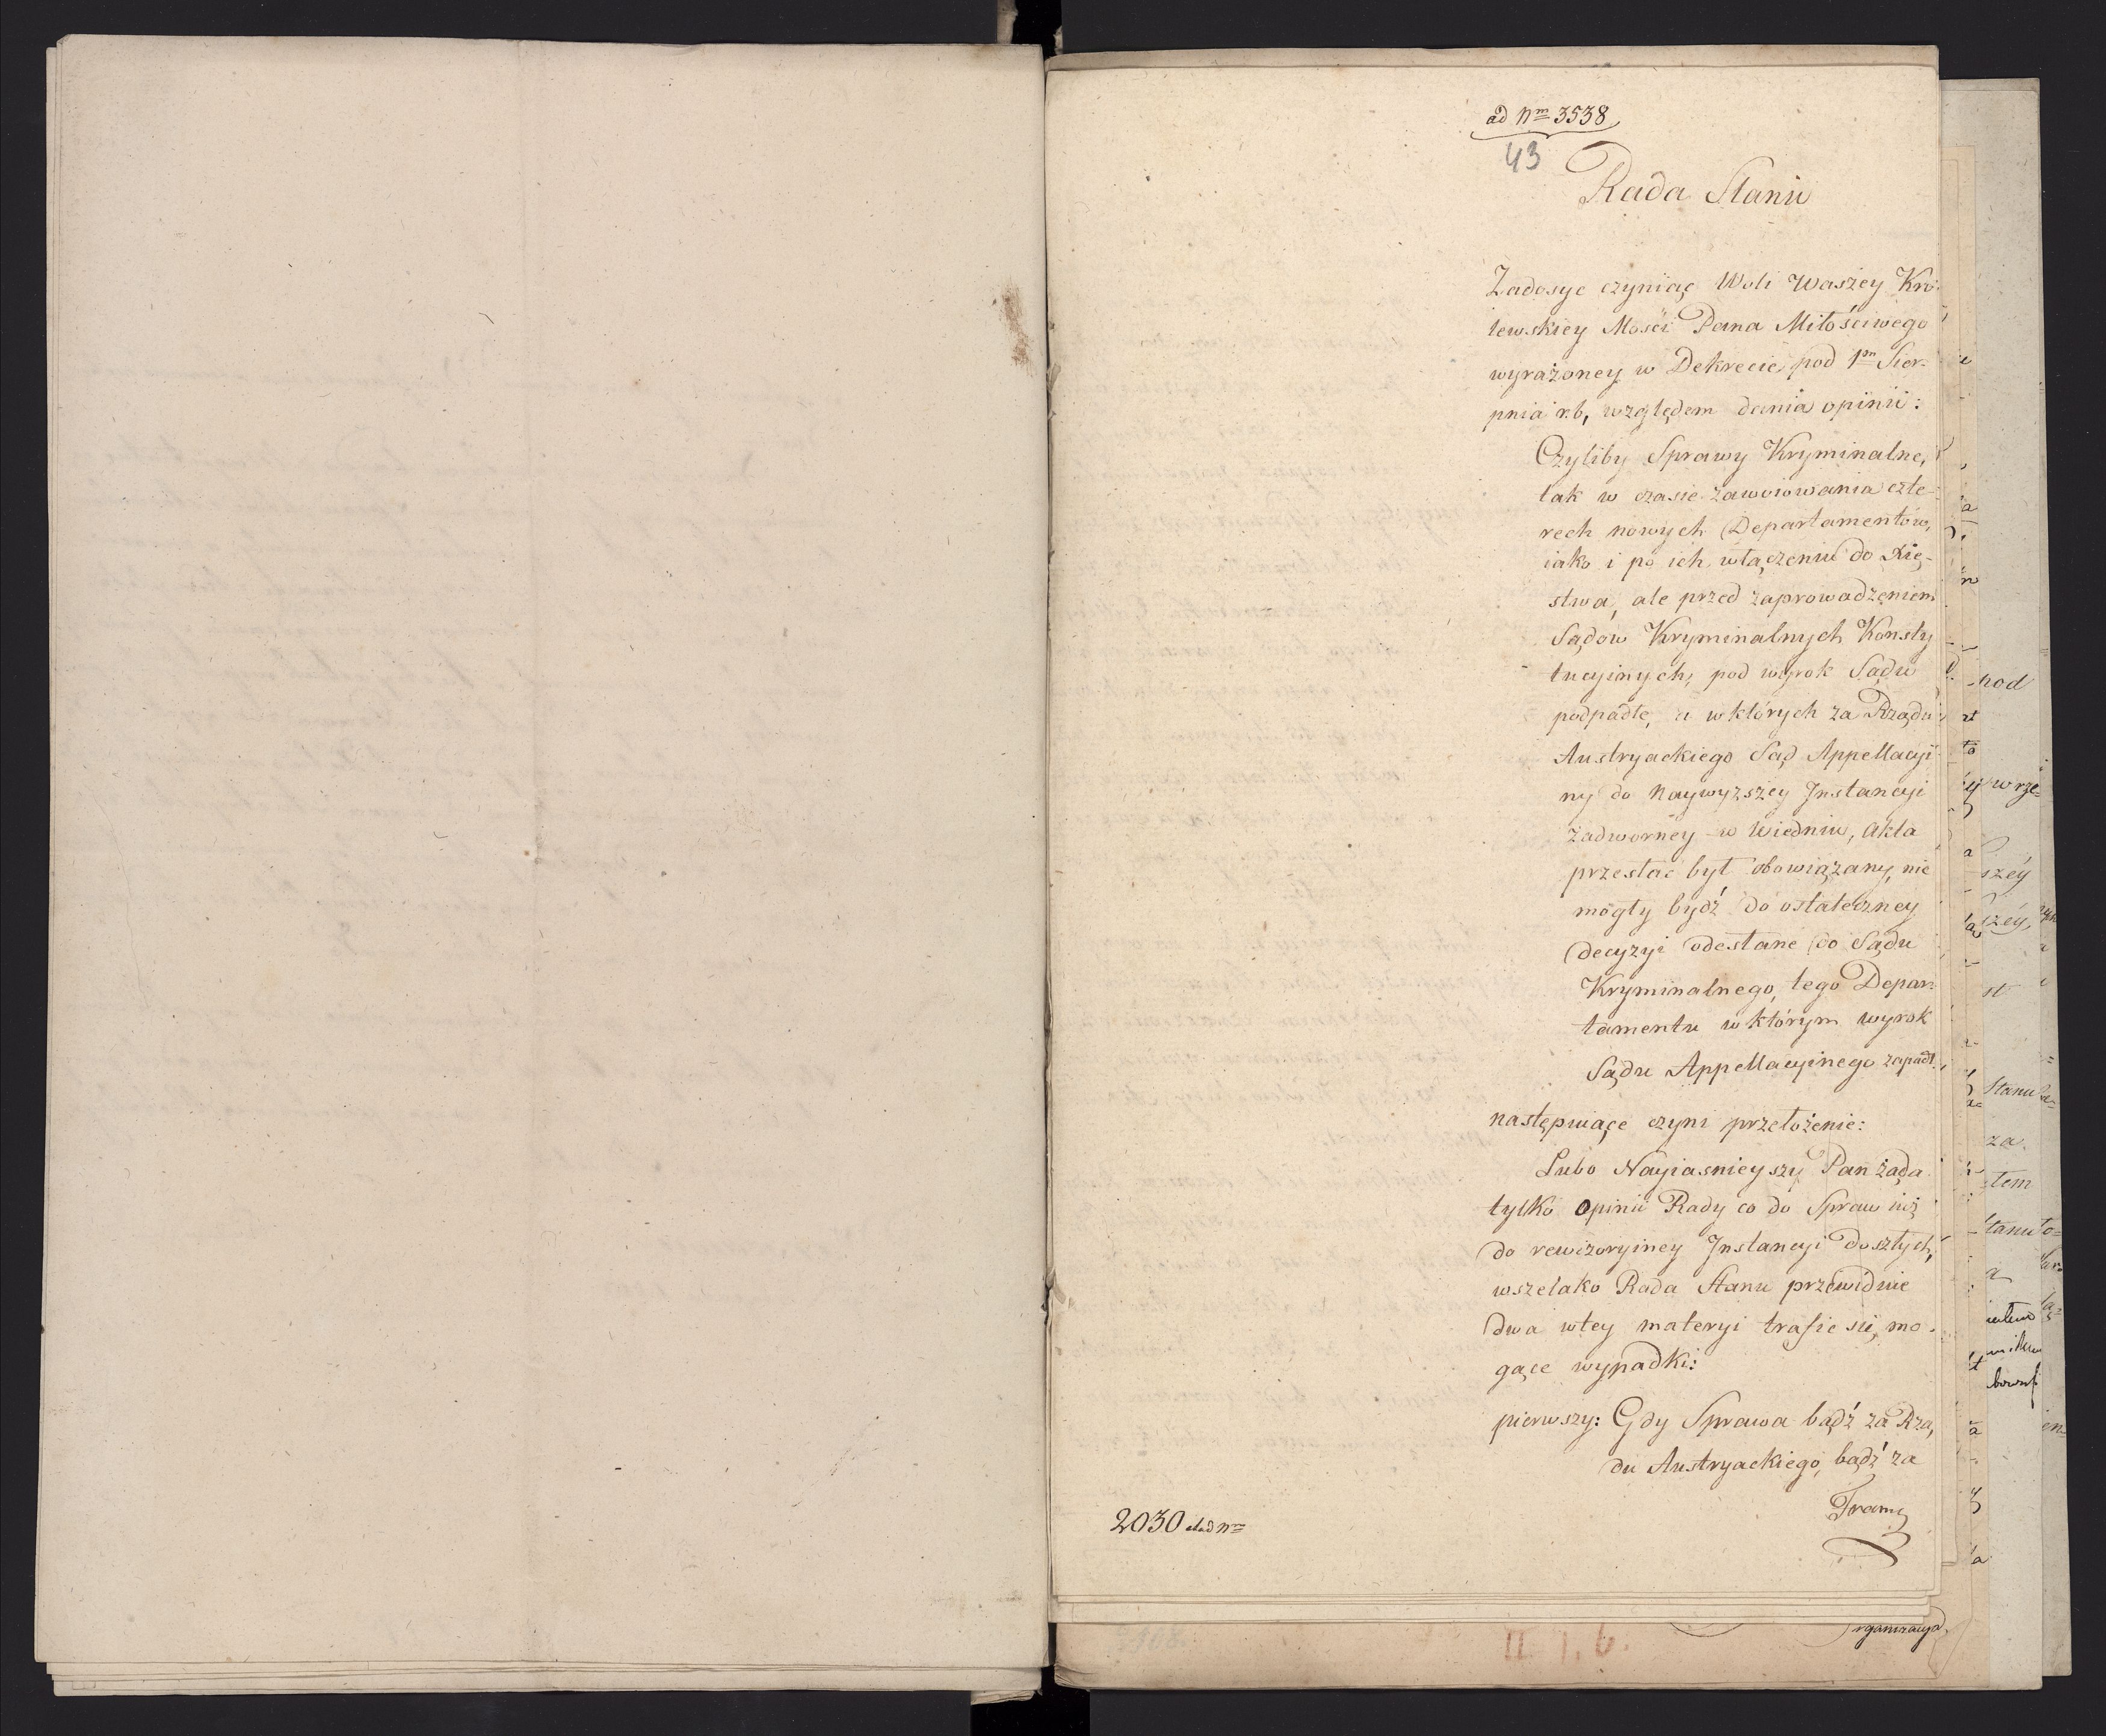 ad Nm 3538
43
Rada Stanu
Zadosyc czyniąc Woli Waszey Kró-
lewskiey Mości Pana Miłościwego
wyrażoney w Dekrecie pod 1m Sier-
pnia r.b, względem dania opinii:
Czyliby Sprawy Kryminalne,
tak w czasie zawoiowania czte-
rech nowych Departamentów,
iako i po ich włączeniu do Xię-
stwa, ale przed zaprowadzeniem
Sądów Kryminalnych Konsty
tucyinych, pod wyrok Sądu
podpadłe, a w których za Rządu
Austryackiego Sąd Appellacyi
ny do Naywyzszey Instancyi
zadworney w Wiedniu, Akta
przesłać był obowiązany, nie
mogły bydź do ostateczney
decyzyi odesłane do Sądu
Kryminalnego, tego Depar-
tamentu w którym wyrok
Sądu Appellacyinego zapadł,
następuiące czyni przełożenie:
Lubo Nayiasnieyszy Pan żąda
tylko Opinii Rady co do Spraw iuż
do rewizoryiney Instancyi doszłych,
wszelako Rada Stanu przewiduie
dwa w tey materyi trafic się mo-
gące wypadki:
pierwszy: Gdy Sprawa bądź za Rzą,
du Austryackiego, bądź za
Tram
2030 ad Nm
rganizacya
II 1. 6.